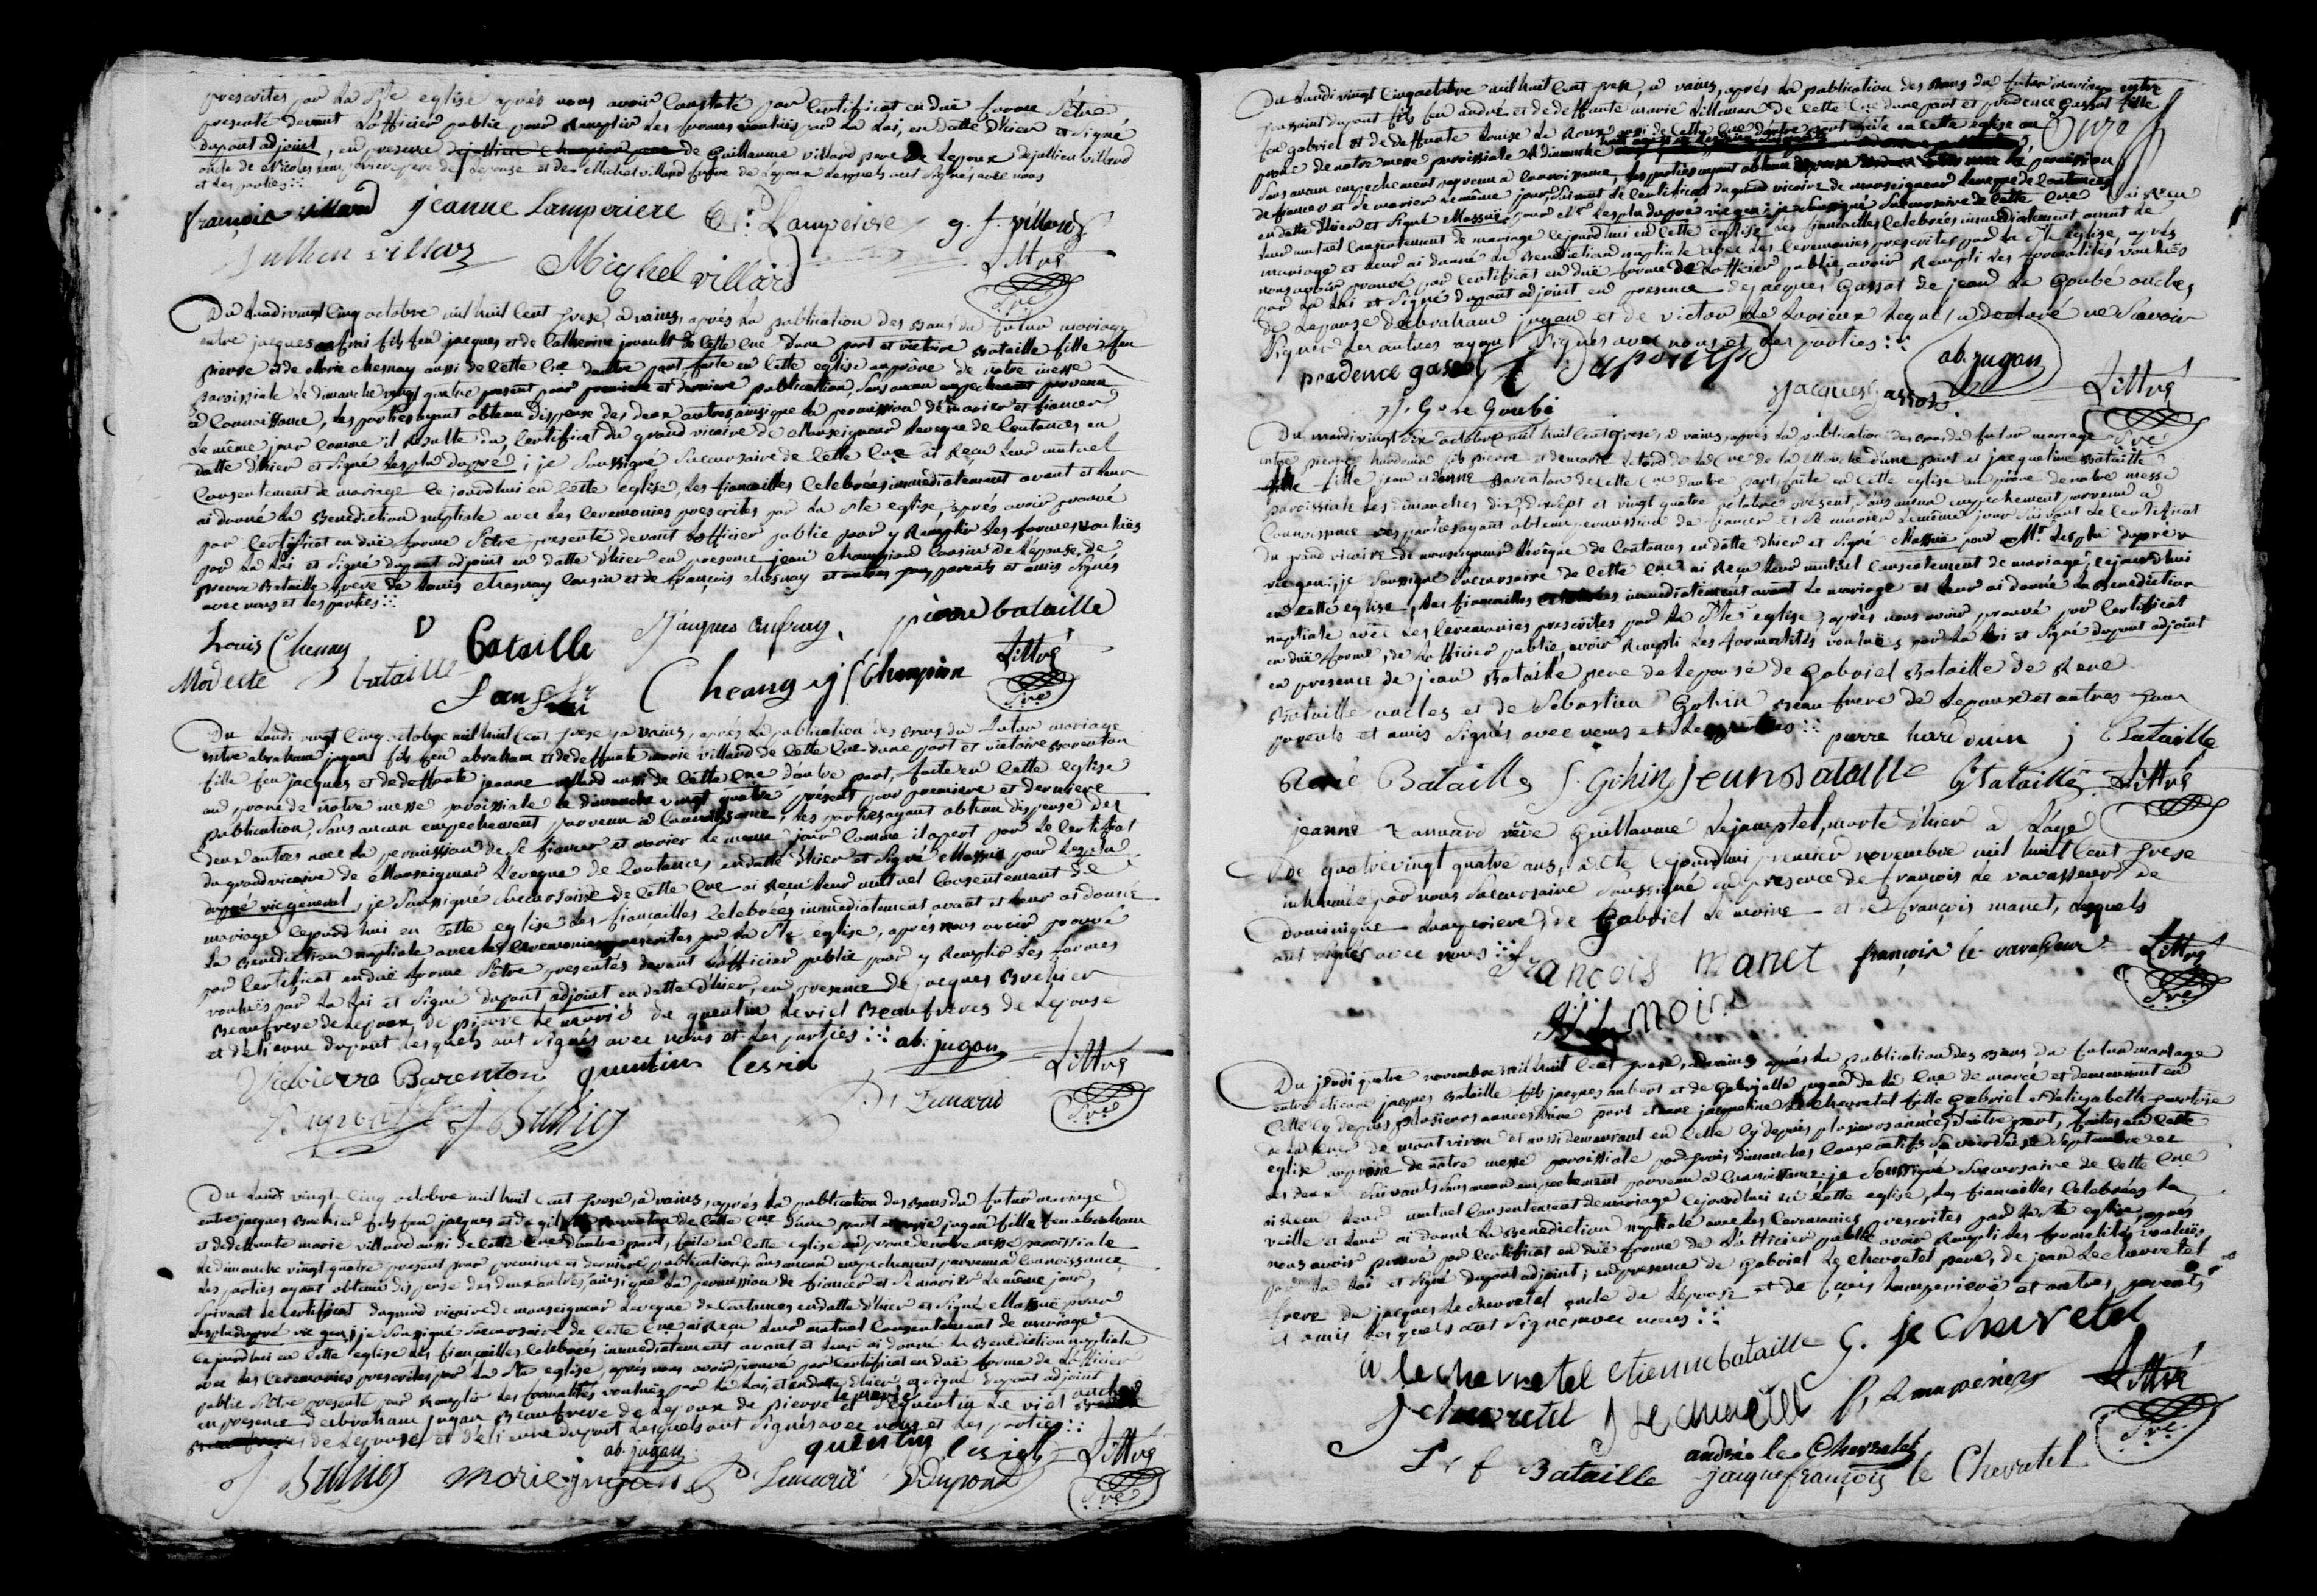 prescrites par la Ste eglise aprés nous avoir constaté par certificat en duë forme s'être
presenté devant l'officier public pour remplir les formes vouluës par la loi, en datte d'hier et signé
dupont adjoint, en presence de Guillaume villard pere de l'epoux de jullien villard
oncle de Nicolas Lamperiere pere de l'epouse et de Michel villard frere de l'epoux lesquels ont signés avec nous
et les parties
françois villard jeanne Lamperiere N: Lamperiere g. f. villard
Jullien villard Michel villard Littré
Sre
Du Lundi vingt cinq octobre mil huit cent trese, a vains, aprés la publication des bans du futur mariage
entre jacques fils feu jacques et de Catherine jouault de cette cne d'une part et victoire Bataille fille feu
pierre et de Marie chesnay aussi de cette cne d'autre part faite en cette eglise au prône de notre messe
paroissiale le dimanche vingt quatre present pour premiere et derniere publication, sans aucun empechement parvenu
à connoissance, les parties ayant obtenu dispense des deux autres, ainsi que la permission de marier et fiancer
le même jour comme il resulte du certificat du grand vicaire de Monseigneur l'eveque de Coutances en
datte d'hier et signé Lesplu dupré; je soussigné succursaire de cette cne ai reçu leur mutuel
consentement de mariage ce jourd'hui en cette eglise, les fiancailles celebrées immediatement avant et leur
ai donné la Benediction nuptiale avec les ceremonies prescrites par la Ste eglise, aprés avoir prouvé
par certificat en duë forme s'être presenté devant l'officier public pour y remplir les formes vouluës
par la loi et signé dupont adjoint en datte d'hier en presence jean champion cousin de l'epouse, de
pierre Bataille frere de Louis chesnay cousin et de françois chesnay et autres parents et amis signés
avec nous et les parties
Louis Chesnay V Bataille Jacques pierre bataille
Modeste bataille Chesnay J Champion Littré
Sre
Du Lundi vingt cinq octobre mil huit cent trese, a vains, aprés la publication des bans du futur mariage
entre abraham jugan fils feu abraham et de deffunte marie villard de cette cne d'une part et victoire Barenton
fille feu jacques et de deffunte jeanne villard aussi de cette cne d'autre part, faite en cette eglise
au prone de notre messe paroissiale le dimanche vingt quatre présent pour premiere et derniere
publication, sans aucun empechement parvenu à connoissance, les parties ayant obtenu dispense des
deux autres avec la permission de se fiancer et marier le meme jour comme il apert par le certificat
du grand vicaire de Monseigneur l'eveque de Coutances, en datte d'hier et signé Massue pour Lesplu
dupré vic general, je soussigné succursaire de cette cne ai reçu leur mutuel consentement de
mariage cejourd'hui en cette eglise les fiançailles celebrées immediatement avant et leur ai donné
la Benediction nuptiale avec les ceremonies prescrites par la Ste eglise, aprés nous avoir prouvé
par certificat en duë forme s'être presentés devant l'officier public pour y remplir les formes
vouluës par la loi et signé dupont adjoint en datte d'hier, en presence de jacques Brehier
Beaufrere de l'epoux, de pierre le marié de quentin Leviel Beaufreres de l'epouse
et d'etienne dupont lesquels ont signés avec nous et les parties ab. jugan
Victoire Barenton quentin leviel Littré
Dupont J Brehier P. Lemarié Sre
Du Lundi vingt-cinq octobre mil huit cent trese, a vains, aprés la publication des bans du futur mariage
entre jacques Brehier fils feu jacques et de de cette cne d'une part et marie jugan fille feu abraham
et de deffunte marie villard aussi de cette cne d'autre part, faite en cette eglise au prone de notre messe paroissiale
le dimanche vingt quatre present pour premiere et derniere publication, sans aucun empechement parvenu à connoissance,
les parties ayant obtenu dispense des deux autres, ainsi que la permission de fiancer et se marier le même jour,
suivant le certificat du grand vicaire de monseigneur l'eveque de Coutances en datte d'hier et signé Massuë pour
Lesplu dupré vic gen; je soussigné succursaire de cette cne ai reçu leur mutuel consentement de mariage
ce jourd'hui en cette eglise les fiançailles celebrées immediatement avant et leur ai donné la Benediction nuptiale
avec les ceremonies prescrites par la Ste eglise, aprés nous avoir prouvé par certificat en duë forme de l'officier
public s'être presenté pour remplir les formalités vouluës par la loi, et en datte d'hier, et signé dupont adjoint
en presence d'abraham jugan Beaufrere de l'epoux de pierre le marié et de quentin Le viel oncles
de l'epouse et d'etienne dupont lesquels ont signés avec nous et les parties
ab. jugan quentin leviel Littré
J Brehier marie jugan P Lemarié E Dupont Sre
Du Lundi vingt cinq octobre mil huit cent treze, a vains, aprés la publication des bans du futur mariage entre
toussaint dupont fils feu andré et de deffunte marie villemare de cette cne d'une part et prudence Gassot fille
feu gabriel et de deffunte Louise Le Roux aussi de cette cne d'autre part faite en cette eglise au
prone de notre messe paroissiale le dimanche
sans aucun empechement parvenu à connoissance, les parties ayant obtenu la permission
de fiancer et de marier le même jour, suivant le certificat du grand vicaire de monseigneur l'eveque de Coutances
en datte d'hier et signé Massuë pour Mr Lesplu dupré vic gen; je soussigné succursaire de cette cne ai reçu
leur mutuel consentement de mariage cejourd'hui en cette eglise les fiancailles celebrées immediatement avant le
mariage et leur ai donné la Benediction nuptiale avec les ceremonies prescrites par la Ste eglise, aprés
nous avoir prouvé par certificat en duë forme de l'officier public, avoir rempli les formalités vouluës
par la loi et signé dupont adjoint en presence de jacques Gassot de jean Le Goubé oncles
de l'epouse d'abraham jugan et de victor Le Lorieux lequel a declaré ne savoir
signer les autres ayant signés avec nous et les parties
prudence gassot t Dupont ab. jugan
J. G. le Goubé Jacques Gassot Littré
Sre
Du mardi vingt six octobre mil huit cent treze, a vains, aprés la publication des bans du futur mariage
entre pierre hardouin fils pierre et de marie Letard de la cne de la Mouche d'une part et jacqueline Bataille
fille jean et d'anne Barenton de cette cne d'autre part, faite en cette eglise au prône de notre messe
paroissiale les dimanches dix, dixsept et vingt quatre octobre présent, sans aucun empechement parvenu à
connoissance les parties ayant obtenu permission de fiancer et se marier le même jour suivant le certificat
du grand vicaire de monseigneur l'evêque de Coutances en datte d'hier et signé Massuë pour Mr Lesplu dupré
vic gen:; je soussigné succursaire de cette cne ai reçu leur mutuel consentement de mariage, cejourd'hui
en cette eglise, les fiancailles celebrées immediatement avant le mariage et leur ai donné la Benediction
nuptiale avec les ceremonies prescrites par la Ste eglise, aprés nous avoir prouvé par certificat
en duë forme, de l'officier public, avoir rempli les formalités vouluës par la loi et signé dupont adjoint
en presence de jean Bataille pere de l'epouse de Gabriel Bataille de René
Bataille oncles et de Sebastien Gohin Beau frere de l'epouse et autres
parents et amis signés avec nous et les parties pierre hardouin j Bataille
René Bataille S. Gohin jean Bataille G Bataille Littré
jeanne vëve Guillaume Lejamptel, morte d'hier a l'age
de quatrevingt quatre ans, a été cejourd'hui premier novembre mil huit cent treze
inhumée par nous succursaire soussigné en presence de françois Le vavasseur de
dominique Lamperiere, de Gabriel Le moine et de françois manet, lesquels
ont signés avec nous françois manet françois le vavasseur Littré
Le moine Sre
Du jeudi quatre novembre mil huit cent treze, a vains aprés la publication des bans du futur mariage
entre etienne jacques Bataille fils jacques aubert et de Gabrielle jugan de la cne de marcé et demeurant en
cette cy depuis plusieurs années d'une part et anne jacqueline Le Chevretel fille Gabriel et d'elizabeth
de la cne de mont viron et aussi demeurant en cette cy depuis plusieurs années, d'autre part, faites en cette
eglise au prône de notre messe paroissiale par trois dimanches consecutifs, savoir septembre et
les deux suivants, sans aucun empechement parvenu à connoissance; je soussigné succursaire de cette cne
ai reçu leur mutuel consentement de mariage cejourd'hui en cette eglise, les fiancailles celebrées la
veille et leur ai donné la Benediction nuptiale avec les ceremonies prescrites par la Ste eglise, aprés
nous avoir prouvé par certificat en duë forme de l'officier public avoir rempli les formalités vouluës
par la loi et signé dupont adjoint; en presence de Gabriel Le chevretel pere, de jean Le chevretel
frere de jacques Le chevretel oncle de l'epouse et de Lamperiere et autres, parents
et amis lesquels ont signé avec nous
a le chevretel etienne bataille G. le Chevretel
J chevretel J Le chevretel Lamperiere Littré
Bataille andré le Chevretel
jacque françois le Chevretel Sre